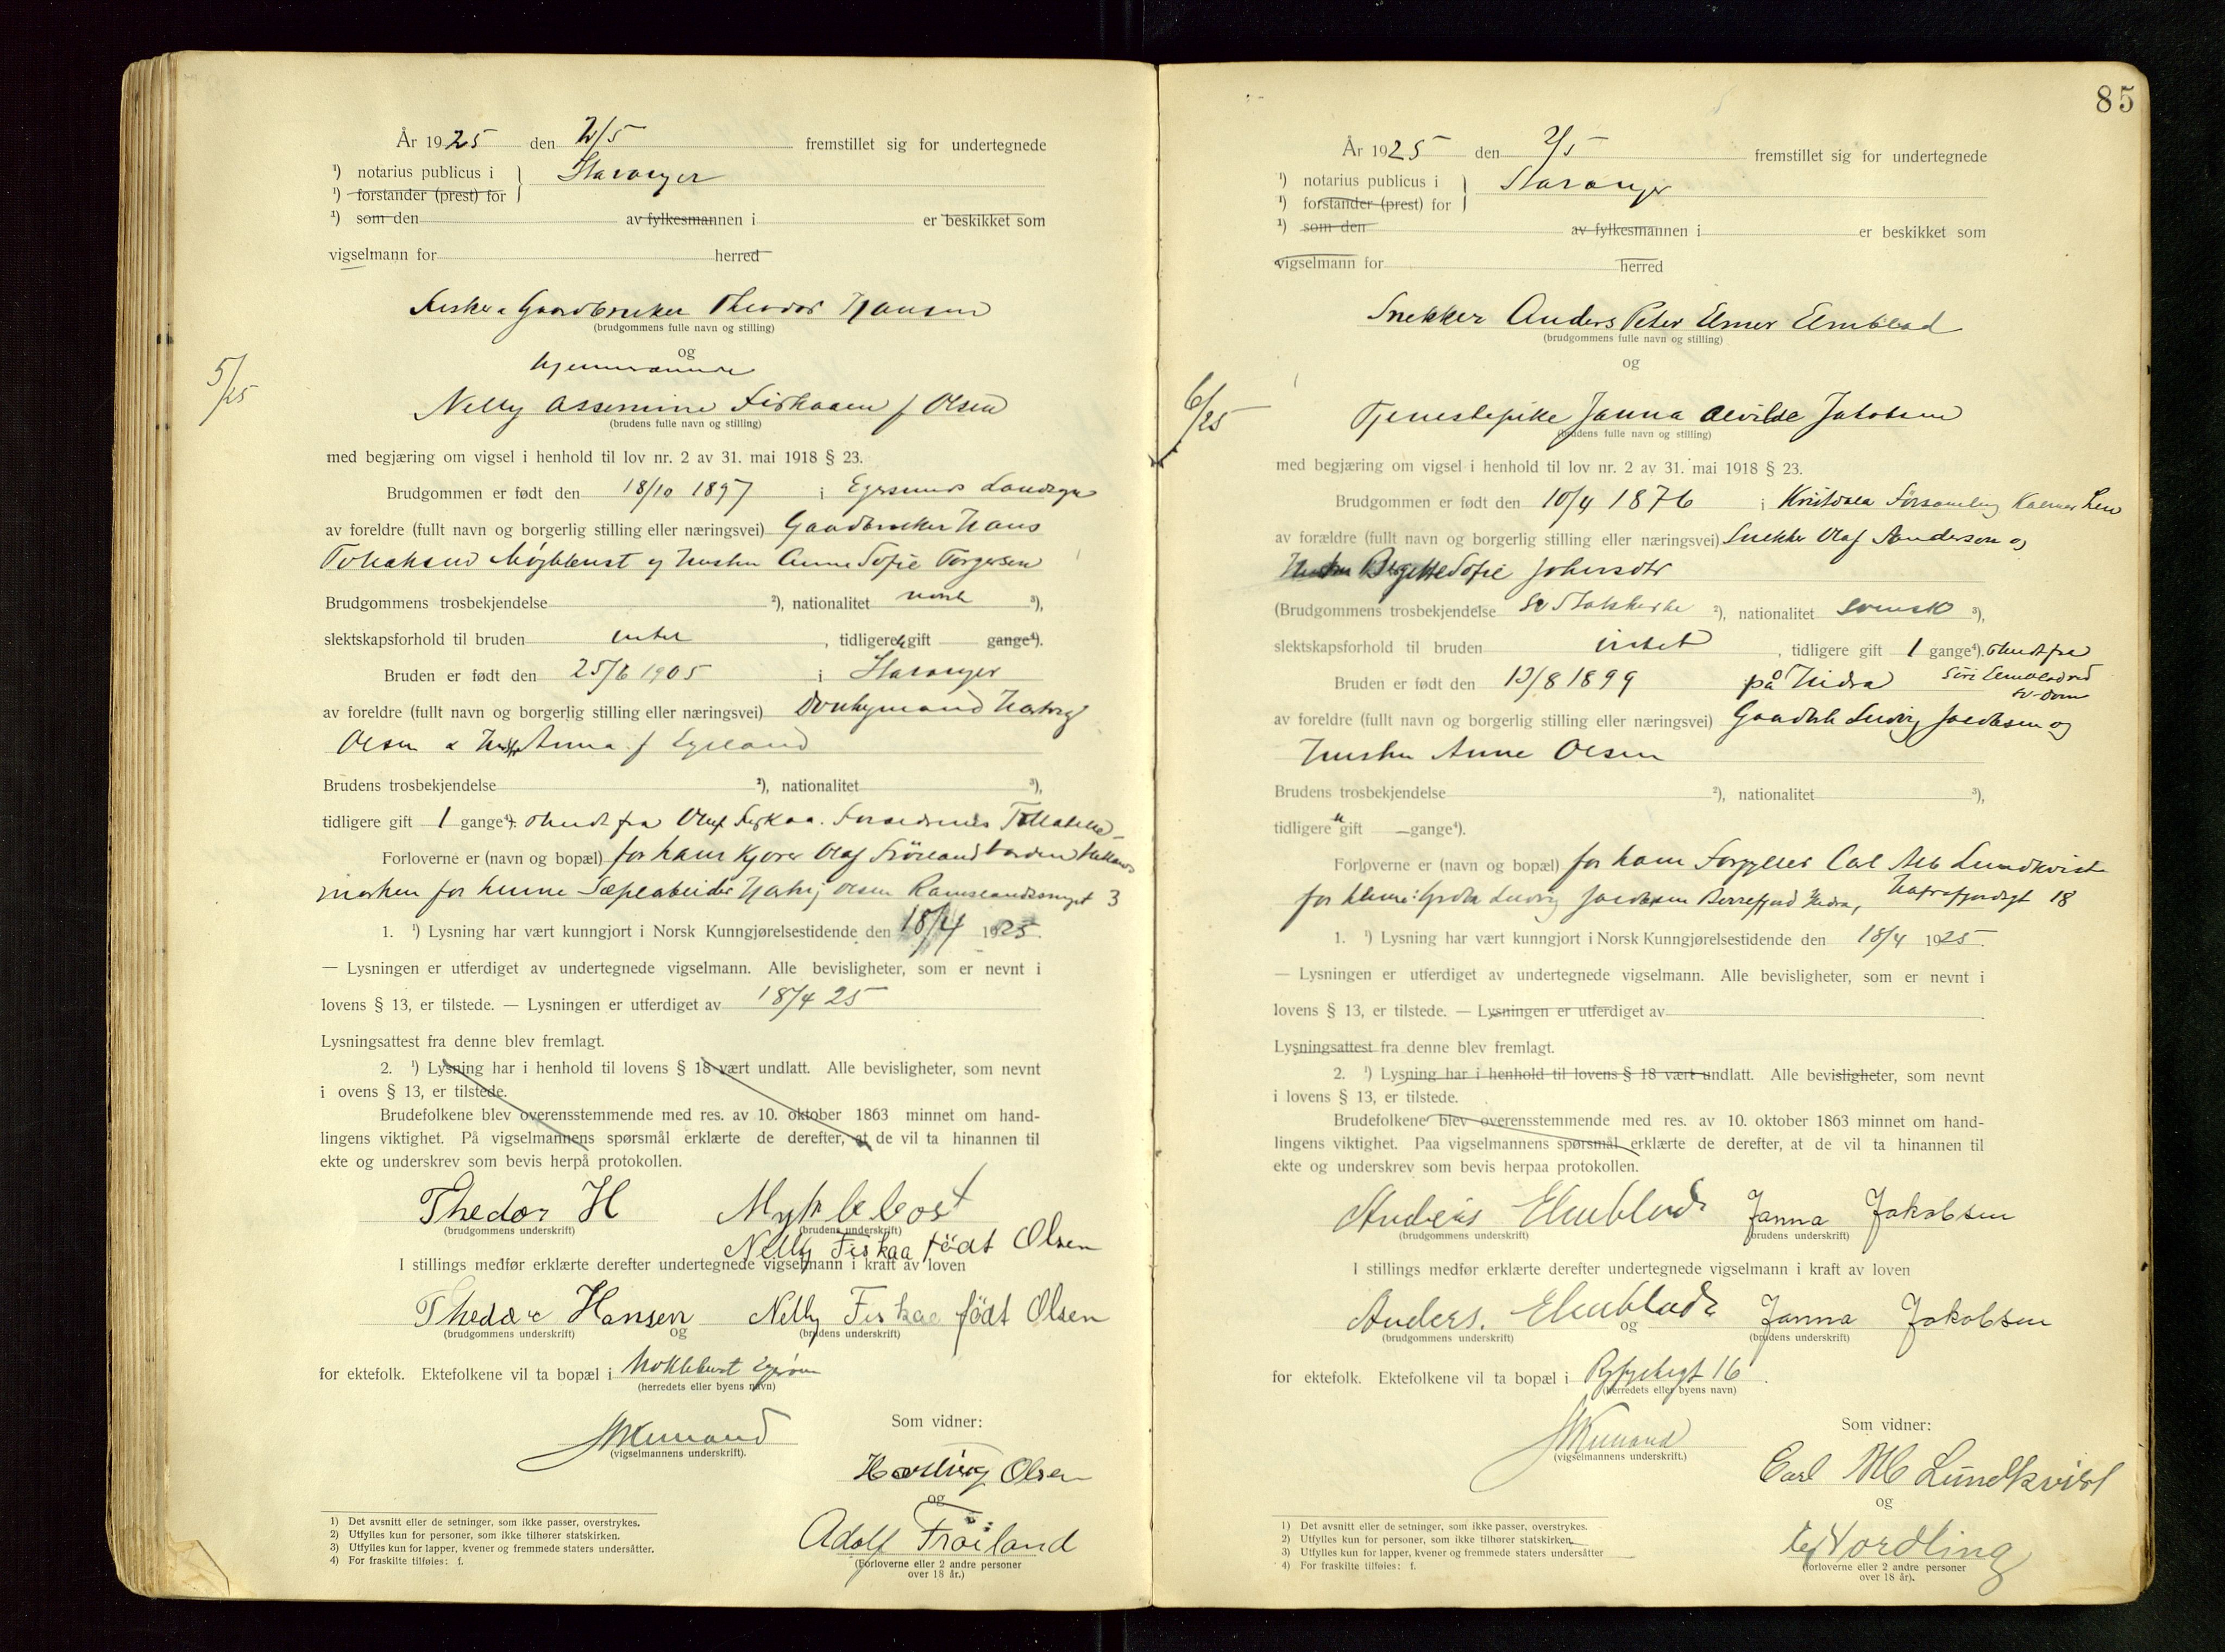 År 1925 den 2/5 fremstillet sig for undertegnede
1) notarius publicus i Stavanger
1) forstander (prest) for
1) som den av fylkesmannen i er beskikket som
vigselmann for herred
Fisker & Gaardbruker Theodor Hansen
(brudgommens fulle navn og stilling)
og
hjemmeværende
5/25
Nelly Assemine Fiskaaen f Olsen
(brudens fulle navn og stilling)
med begjæring om vigsel i henhold til lov nr. 2 av 31. mai 1918 § 23.
Brudgommen er født den 18/10 1897 i Egersunds Landsogn
av foreldre (fullt navn og borgerlig stilling eller næringsvei) Gaardbruker Hans
og hustru Anne Sofie Torgersen
Brudgommens trosbekjendelse 2), nationalitet norsk 3),
slektskapsforhold til bruden intet , tidligere gift gange4).
Bruden er født den 25/6 1905 i Stavanger
av foreldre (fullt navn og borgerlig stilling eller næringsvei) Hartvig
Olsen & Hustru Anna f Eyeland
Brudens trosbekjendelse 2), nationalitet 3),
tidligere gift 1 gange4). skilt fra Olaf Fiskaa.
Forloverne er (navn og bopæl) for ham Olaf
marken for henne Sæpearbeider Hartvig Olsen 3
1. 1) Lysning har vært kunngjort i Norsk Kunngjørelsestidende den 18/4 1925.
— Lysningen er utferdiget av undertegnede vigselmann. Alle bevisligheter, som er nevnt i
lovens § 13, er tilstede. — Lysningen er utferdiget av 18/4 25
Lysningsattest fra denne blev fremlagt.
2. 1) Lysning har i henhold til lovens § 18 vært undlatt. Alle bevisligheter, som nevnt
i ovens § 13, er tilstede.
Brudefolkene blev overensstemmende med res. av 10. oktober 1863 minnet om hand-
lingens viktighet. På vigselmannens spørsmål erklærte de derefter, at de vil ta hinannen til
ekte og underskrev som bevis herpå protokollen.
Thedor H Myklebost
(brudgommens underskrift) (brudens underskrift)
Nelly Fiskaa født Olsen
I stillings medfør erklærte derefter undertegnede vigselmann i kraft av loven
Thedor Hansen Nelly Fiskaa født Olsen
(brudgommens underskrift) og (brudens underskrift)
for ektefolk. Ektefolkene vil ta bopæl i
(herredets eller byens navn)
(vigselmannens underskrift).
Som vidner:
Hartvig Olsen
og
Adolf Fröiland
(Forloverne eller 2 andre personer
over 18 år.)
1) Det avsnitt eller de setninger, som ikke passer, overstrykes.
2) Utfylles kun for personer, som ikke tilhører statskirken.
3) Utfylles kun for lapper, kvener og fremmede staters undersåtter.
4) For fraskilte tilføies: f.
85
År 1925 den 2/5 fremstillet sig for undertegnede
1) notarius publicus i Stavanger
1) forstander (prest) for
1) som den av fylkesmannen i er beskikket som
vigselmann for herred
Snekker Anders Peter Elmer Elmblad
(brudgommens fulle navn og stilling)
og
6/25
Tjenestepike Janna Alvilde Jakobsen
(brudens fulle navn og stilling)
med begjæring om vigsel i henhold til lov nr. 2 av 31. mai 1918 § 23.
Brudgommen er født den 10/4 1876 i Församling Kalmar Len
av forældre (fullt navn og borgerlig stilling eller næringsvei) Snekker Olaf Anderson og
Hustru Sofie Johnsdtr
(Brudgommens trosbekjendelse Sv Statskirke 2), nationalitet svensk 3),
slektskapsforhold til bruden intet , tidligere gift 1 gange4). skilt fra
Bruden er født den 13/8 1899 på Hidra
av foreldre (fullt navn og borgerlig stilling eller næringsvei) Gaardbr Ludvig Jacobsen og
hustru Anne Olsen
Brudens trosbekjendelse 2), nationalitet 3),
tidligere gift — gange4).
Forloverne er (navn og bopæl) for ham Forgylder Carl Alb Lundkvist
for henne: Ludvig Jacobsen Hidra, Hafrsfjordgt 18
1. 1) Lysning har vært kunngjort i Norsk Kunngjørelsestidende den 18/4 1925.
— Lysningen er utferdiget av undertegnede vigselmann. Alle bevisligheter, som er nevnt i
lovens § 13, er tilstede. — Lysningen er utferdiget av
Lysningsattest fra denne blev fremlagt.
2. 1) Lysning har i henhold til lovens § 18 vært undlatt. Alle bevisligheter, som nevnt
i lovens § 13, er tilstede.
Brudefolkene blev overensstemmende med res. av 10. oktober 1863 minnet om hand-
lingens viktighet. Paa vigselmannens spørsmål erklærte de derefter, at de vil ta hinannen til
ekte og underskrev som bevis herpaa protokollen.
Anders Elmblad Janna Jakobsen
(brudgommens underskrift) (brudens underskrift)
I stillings medfør erklærte derefter undertegnede vigselmann i kraft av loven
Anders. Elmblad Janna Jakobsen
(brudgommens underskrift) og (brudens underskrift)
for ektefolk. Ektefolkene vil ta bopæl i Ryfylkegt 16.
(herredets eller byens navn)
(vigselmannens underskrift.)
Som vidner:
Carl Alb Lundkvist
og
Nordling
(forloverne eller 2 andre personer
over 18 år).
1) Det avsnitt eller de setninger, som ikke passer, overstrykes.
2) Utfylles kun for personer, som ikke tilhører statskirken.
3) Utfylles kun for lapper, kvener og fremmede staters undersåtter
4) For fraskilte tilføies: f.